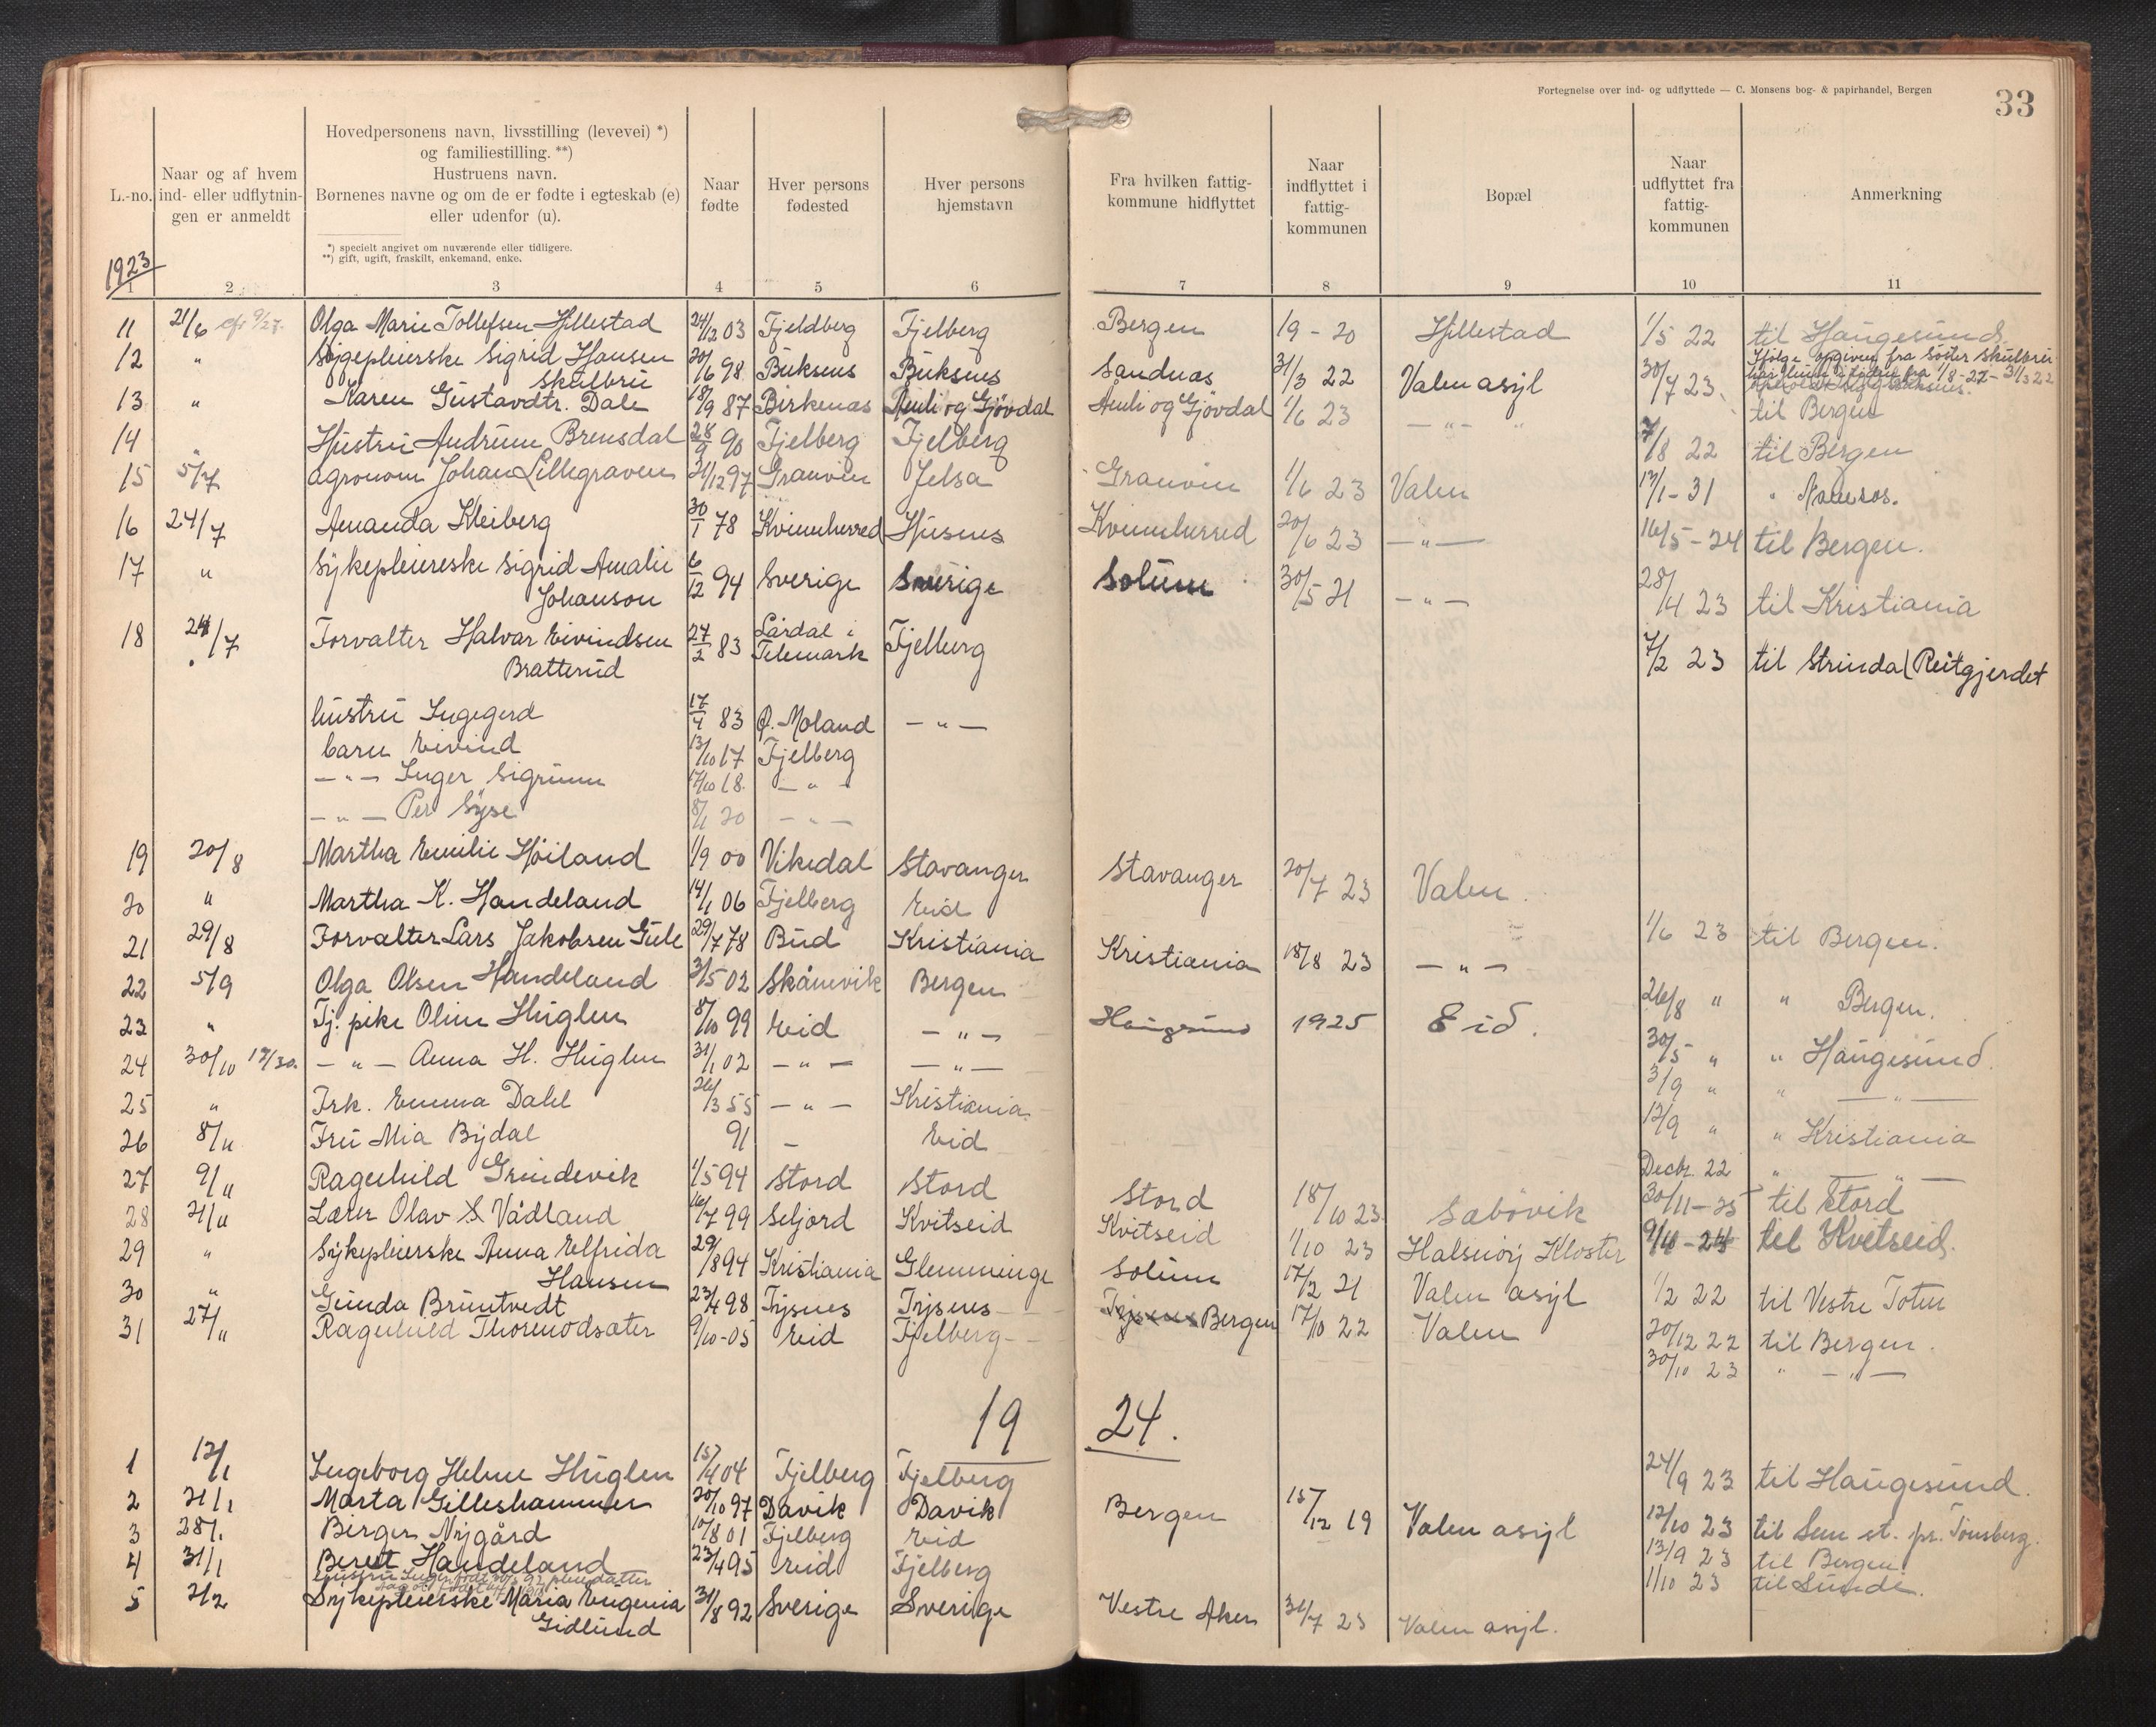 Fortegnelse over ind- og udflyttede — C. Monsens bog- & papirhandel, Bergen
33
L.-no.
Naar og af hvem ind- eller udflytningen er anmeldt
Hovedpersonens navn, livsstilling (levevei) *)
og familiestilling. **)
Hustruens navn.
Børnenes navne og om de er fødte i egteskab (e)
eller udenfor (u).
*) specielt angivet om nuværende eller tidligere.
**) gift, ugift, fraskilt, enkemand, enke.
Naar fødte
Hver persons fødested
Hver persons hjemstavn
Fra hvilken fattig-kommune hidflyttet
Naar indflyttet i fattig-kommunen
Bopæl
Naar udflyttet fra fattig-kommunen
Anmerkning
1923
1 2 3 4 5 6 7 8 9 10 11
11 21/6 Olga Marie Tollefsen Hillestad 24/12 03 Fjeldberg Fjelberg Bergen 19 - 20 Hillestad 1/5 22 til Haugesund
12 " Sygepleierske Sigrid Hansen 20/6 98 Buksnes Buksnes Sandnas 31/3 22 Valen asyl 30/7 23
Skulbru
13 " Karen Gustavdtr. Dale 18/9 87 Birkenas Amli og Gjövdal Amli og Gjövdal 1/6 23 — " — " til Bergen
14 " Hustru Andrine Brensdal 28/9 90 Fjelberg Fjelberg 7/8 22 til Bergen
15 5/7 agronom Johan Lillegraven 31/12 97 Granvin Jelsa Granvin 1/6 23 Valen 17/1 - 31 "
16 24/7 Amanda Kleiberg 30/1 78 Kvinnherred Husnes Kvinnherred 20/6 23 — " — 16/5 - 24 til Bergen.
17 " Sykepleiereske Sigrid Amalie 6/12 94 Sverige Sverige Solum 30/5 21 — " — 28/4 23 til Kristiania
Johanson
18 24/7 Forvalter Halvar Eivindsen 27/2 83 Lårdal i Telemark Fjelberg 7/2 23 til Strinda (Reitgjerdet
Bratterud
hustru Ingegerd 17/4 83 Ø. Moland — " —
barn Eivind 13/10 17 Fjelberg
— " — Inger Sigrunn 17/10 18 — " —
— " — Per Syse 8/1 20 — " —
19 20/8 Martha Emilie Høiland 1/9 00 Vikedal Stavanger Stavanger 20/7 23 Valen.
20 " Martha K. Handeland 14/1 06 Fjelberg Eid 1/6 23 til Bergen.
21 29/8 Forvalter Lars Jakobsen Gule 29/7 78 Bud Kristiania Kristiania 18/8 23 — " —
22 5/9 Olga Olsen Handeland 3/5 02 Skånevik Bergen 26/8 " " Bergen.
23 " Tj. pike Oline Huglen 8/10 99 Eid — " — Haugesund 1925 Eid. 30/5 " " Haugesund.
24 30/10 17/30. — " — Anna H. Huglen 31/1 02 — " — — " — 3/9 " " — " —
25 " Frk. Emma Dahl 26/3 55 — " — Kristiania 12/9 " " Kristiania
26 8/11 Fru Mia Bydal 91 - Eid Decbr. 22 " — " —
27 9/11 Ragnhild Grindevik 1/5 94 Stord Stord Stord 18/10 23 Sæbövik 30/11 - 25 til Stord
28 21/11 Lærer Olav S Vådland 16/7 99 Seljord Kvitseid Kvitseid 1/10 23 Halsnöy Kloster 9/10 - 24 til Kvitseid.
29 " Sykepleierske Anna Elfrida 29/8 94 Kristiania Glemminge Solum 17/2 21 Valen asyl 1/2 22 til Vestre Toten
Hansen
30 " Gunda Bruntvedt 23/4 98 Tysnes Tysnes Tysnes Bergen 17/10 22 Valen 20/12 22 til Bergen.
31 27/11 Ragnhild Thormodsæter 9/10 - 05 Eid Fjelberg 30/10 23 " — " —
19 24.
1 12/1 Ingeborg Helene Huglen 15/4 04 Fjelberg Fjelberg 24/9 23 til Haugesund.
2 21/1 Marta Gilleshammer 20/10 97 Davik Davik Bergen 15/12 19 Valen asyl 12/10 23 til Sem st. pr. Tönsberg.
3 28/1 Birger Nygård 10/8 01 Fjelberg Eid 13/9 23 til Bergen
4 31/1 Beret Handeland 23/4 95 Eid Fjelberg 1/10 23 til Sunde.
5 2/2 Sykepleierske Maria Eugenia 31/8 92 Sverige Sverige Vestre Aker 31/7 23 Valen asyl.
Gidlund